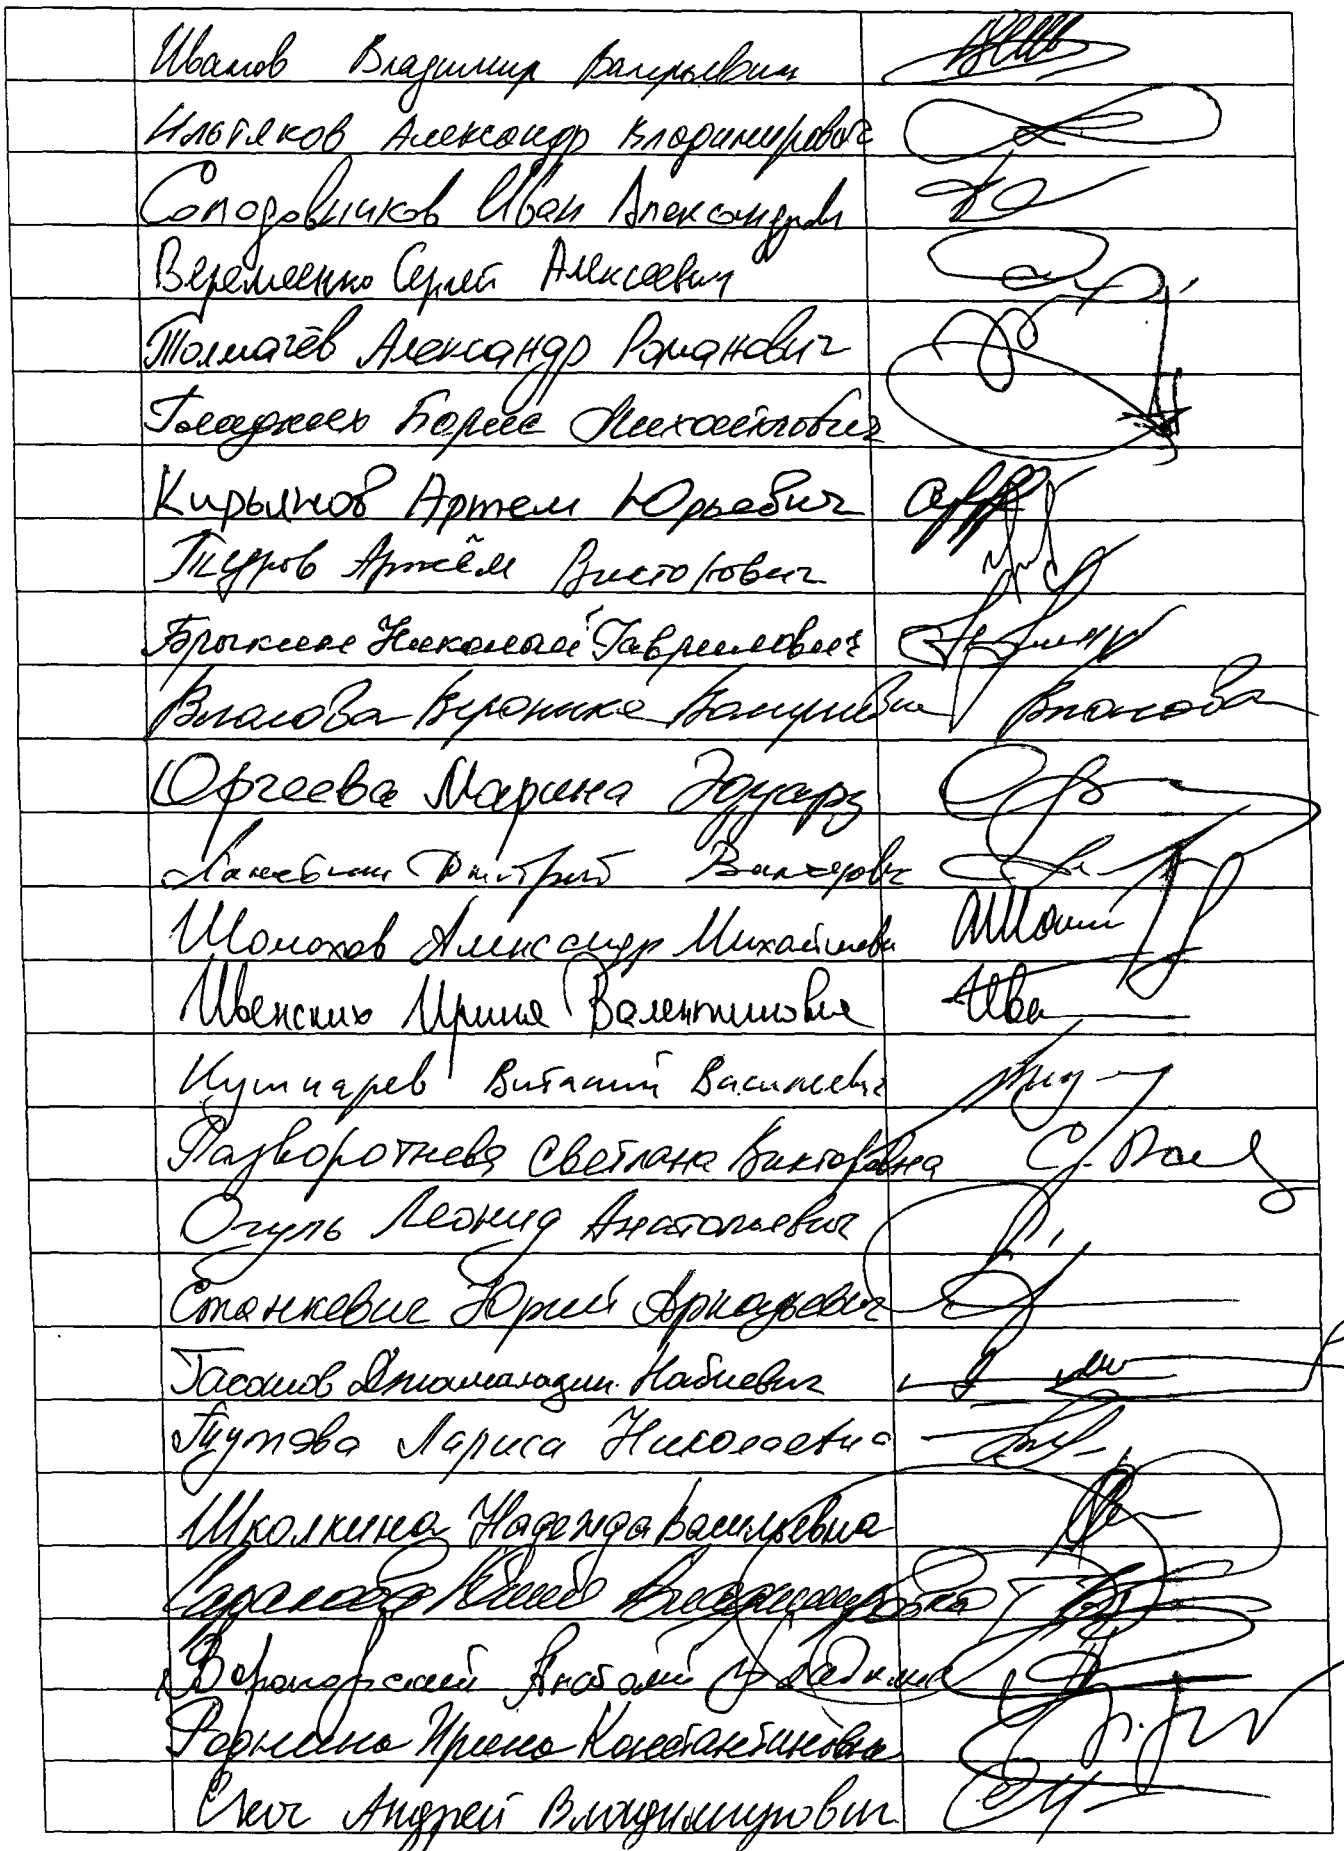 Иванов Владимир Валерьевич
Ильтяков Александр Владимирович
Солодовников Иван Александрович
Веремеенко Сергей Алексеевич
Толмачёв Александр Романович
Гладких Борис Михайлович
Кирьянов Артем Юрьевич
Туров Артём Викторович
Брыкин Николай Гаврилович
Власова Вероника Валерьевна Власова
Оргеева Марина Эдуард
Ламейкин Дмитрий Викторович
Шолохов Александр Михайлович АШолох
Ивенских Ирина Валентиновна Ива
Кушнарев Виталий Васильевич
Разворотнева Светлана Викторовна
Огуль Леонид Анатольевич
Станкевич Юрий Аркадьевич
Гасанов Джамаладин Набиевич
Тутова Лариса Николаевна
Школкина Надежда Васильевна
Юлия Владимировна
Анатолий
Роднина Ирина Константиновна
Скоч Андрей Владимирович